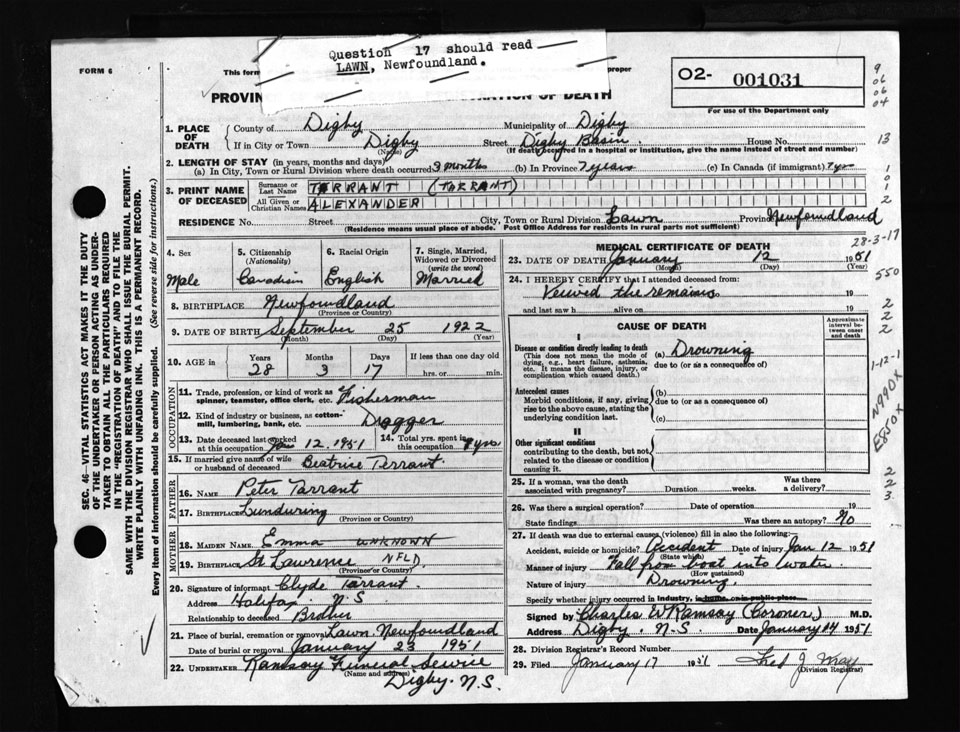 Question 17 should read
LAWN, Newfoundland.
FORM 6
This form
proper
PROVIN
OF DEATH
O2- 001031
For use of the Department only
9
06
06
04
13
1
0
1
2
1. PLACE OF DEATH
County of Digby Municipality of Digby
If in City or Town Digby Street Digby Basin House No.
(Name) (If death occurred in a hospital or institution, give the name instead of street and number)
2. LENGTH OF STAY (in years, months and days)
(a) In City, Town or Rural Division where death occurred 3 months (b) In Province 7 years (c) In Canada (if immigrant) 7 yrs
3. PRINT NAME OF DECEASED
Surname or Last Name TARRANT (TARRANT)
All Given or Christian Names ALEXANDER
RESIDENCE No. Street City, Town or Rural Division Lawn Province Newfoundland
(Residence means usual place of abode. Post Office Address for residents in rural parts not sufficient)
SEC. 46—VITAL STATISTICS ACT MAKES IT THE DUTY
OF THE UNDERTAKER OR PERSON ACTING AS UNDER-
TAKER TO OBTAIN ALL THE PARTICULARS REQUIRED
IN THE "REGISTRATION OF DEATH" AND TO FILE THE
SAME WITH THE DIVISION REGISTRAR WHO SHALL ISSUE THE BURIAL PERMIT.
WRITE PLAINLY WITH UNFADING INK. THIS IS A PERMANENT RECORD.
Every item of information should be carefully supplied. (See reverse side for instructions.)
4. Sex
Male
5. Citizenship
(Nationality)
Canadian
6. Racial Origin
English
7. Single, Married, Widowed or Divorced
(write the word)
Married
8. BIRTHPLACE Newfoundland
(Province or Country)
9. DATE OF BIRTH September 25 1922
(Month) (Day) (Year)
10. AGE in Years Months Days If less than one day old
28 3 17 hrs. or min.
OCCUPATION
11. Trade, profession, or kind of work as
spinner, teamster, office clerk, etc. Fisherman
12. Kind of industry or business, as cotton-
mill, lumbering, bank, etc. Dragger
13. Date deceased last worked
at this occupation Jan 12, 1951
14. Total yrs. spent in
this occupation yrs
15. If married give name of wife
or husband of deceased Beatrice Terrant
FATHER
16. NAME Peter Tarrant
17. BIRTHPLACE Lunduring
(Province or Country)
MOTHER
18. MAIDEN NAME Emma UNKNOWN
19. BIRTHPLACE St Lawrence NFLD.
(Province or Country)
20. Signature of informant Clyde Tarrant
Address Halifax, N.S
Relationship to deceased Brother
21. Place of burial, cremation or removal Lawn, Newfoundland
Date of burial or removal January 23 1951
22. UNDERTAKER Ramsay Funeral Service
(Name and address)
Digby. N.S.
MEDICAL CERTIFICATE OF DEATH
28-3-17
23. DATE OF DEATH January 12 1951
(Month) (Day) (Year)
24. I HEREBY CERTIFY that I attended deceased from:
Veiwed the remains 19
and last saw h alive on 19
550
2
2
2
CAUSE OF DEATH
Approximate interval between onset and death
I
Disease or condition directly leading to death
(This does not mean the mode of
dying, e.g., heart failure, asthenia,
etc. It means the disease, injury, or
complication which caused death.)
(a) Drowning
due to (or as a consequence of)
Antecedent causes
Morbid conditions, if any, giving
rise to the above cause, stating the
underlying condition last.
(b)
due to (or as a consequence of)
(c)
II
Other significant conditions
contributing to the death, but not
related to the disease or condition
causing it.
1-12-1
N990X
E850X
2
2
3
25. If a woman, was the death
associated with pregnancy? Duration weeks. Was there
a delivery?
26. Was there a surgical operation? Date of operation 19
State findings Was there an autopsy? No
27. If death was due to external causes (violence) fill in also the following:
Accident, suicide or homicide? Accident Date of injury Jan 12 1951
(State which)
Manner of injury Fall from boat into water
(How sustained)
Nature of injury Drowning.
Specify whether injury occurred in Industry, in home, or in public place
Signed by Charles W Ramsay (Coroner) M.D.
Address Digby. N.S. Date January 14 1951
28. Division Registrar's Record Number
29. Filed January 17 1951 Fred J Wray
(Division Registrar)